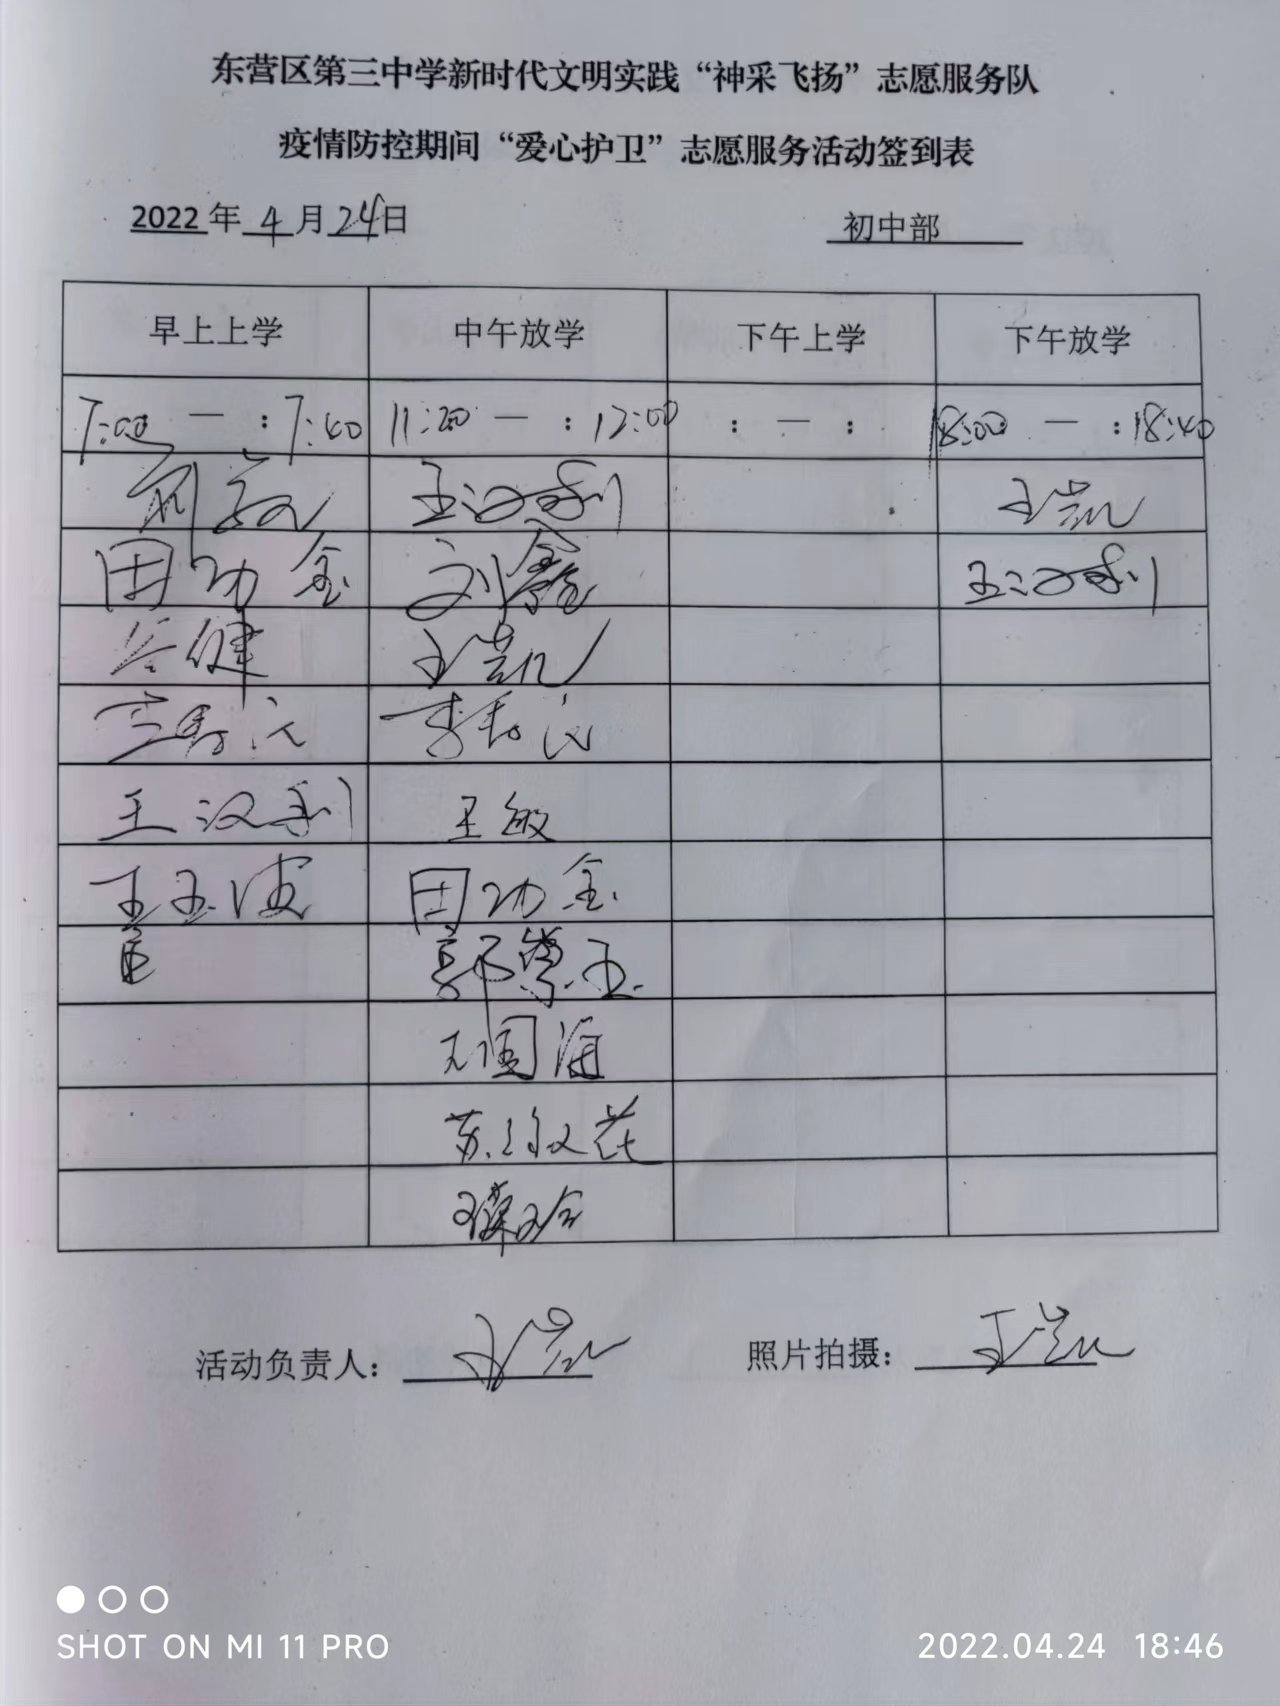 东营区第三中学新时代文明实践“神采飞扬”志愿服务队
疫情防控期间“爱心护卫”志愿服务活动签到表
2022年 4 月 24 日 初中部
早上上学 中午放学 下午上学 下午放学
7:00 — : 7:40 11:20 — : 12:00 : — : 18:00 — : 18:40
王汉利 王凯
田功金 刘鑫 王汉利
谷健 王凯
王汉利 王敏
王玉波 田功金
活动负责人: 王凯 照片拍摄: 王凯
SHOT ON MI 11 PRO 2022.04.24 18:46